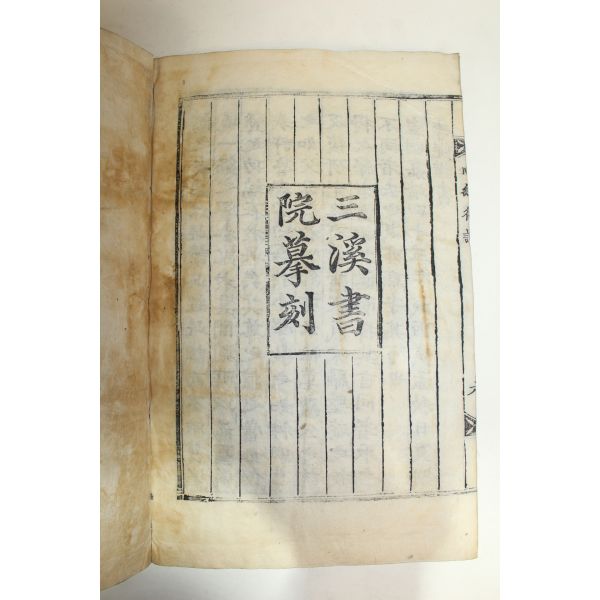 三溪書
院摹刻